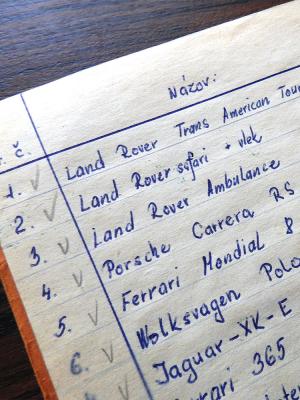 č. Názov:
1. Land Rover Trans American
2. Land Rover safari + vlek
3. Land Rover Ambulance
4. Porsche Carrera RS
5. Ferrari Mondial 8
6. Wolksvagen Polo
Jaguar-XK-E
365